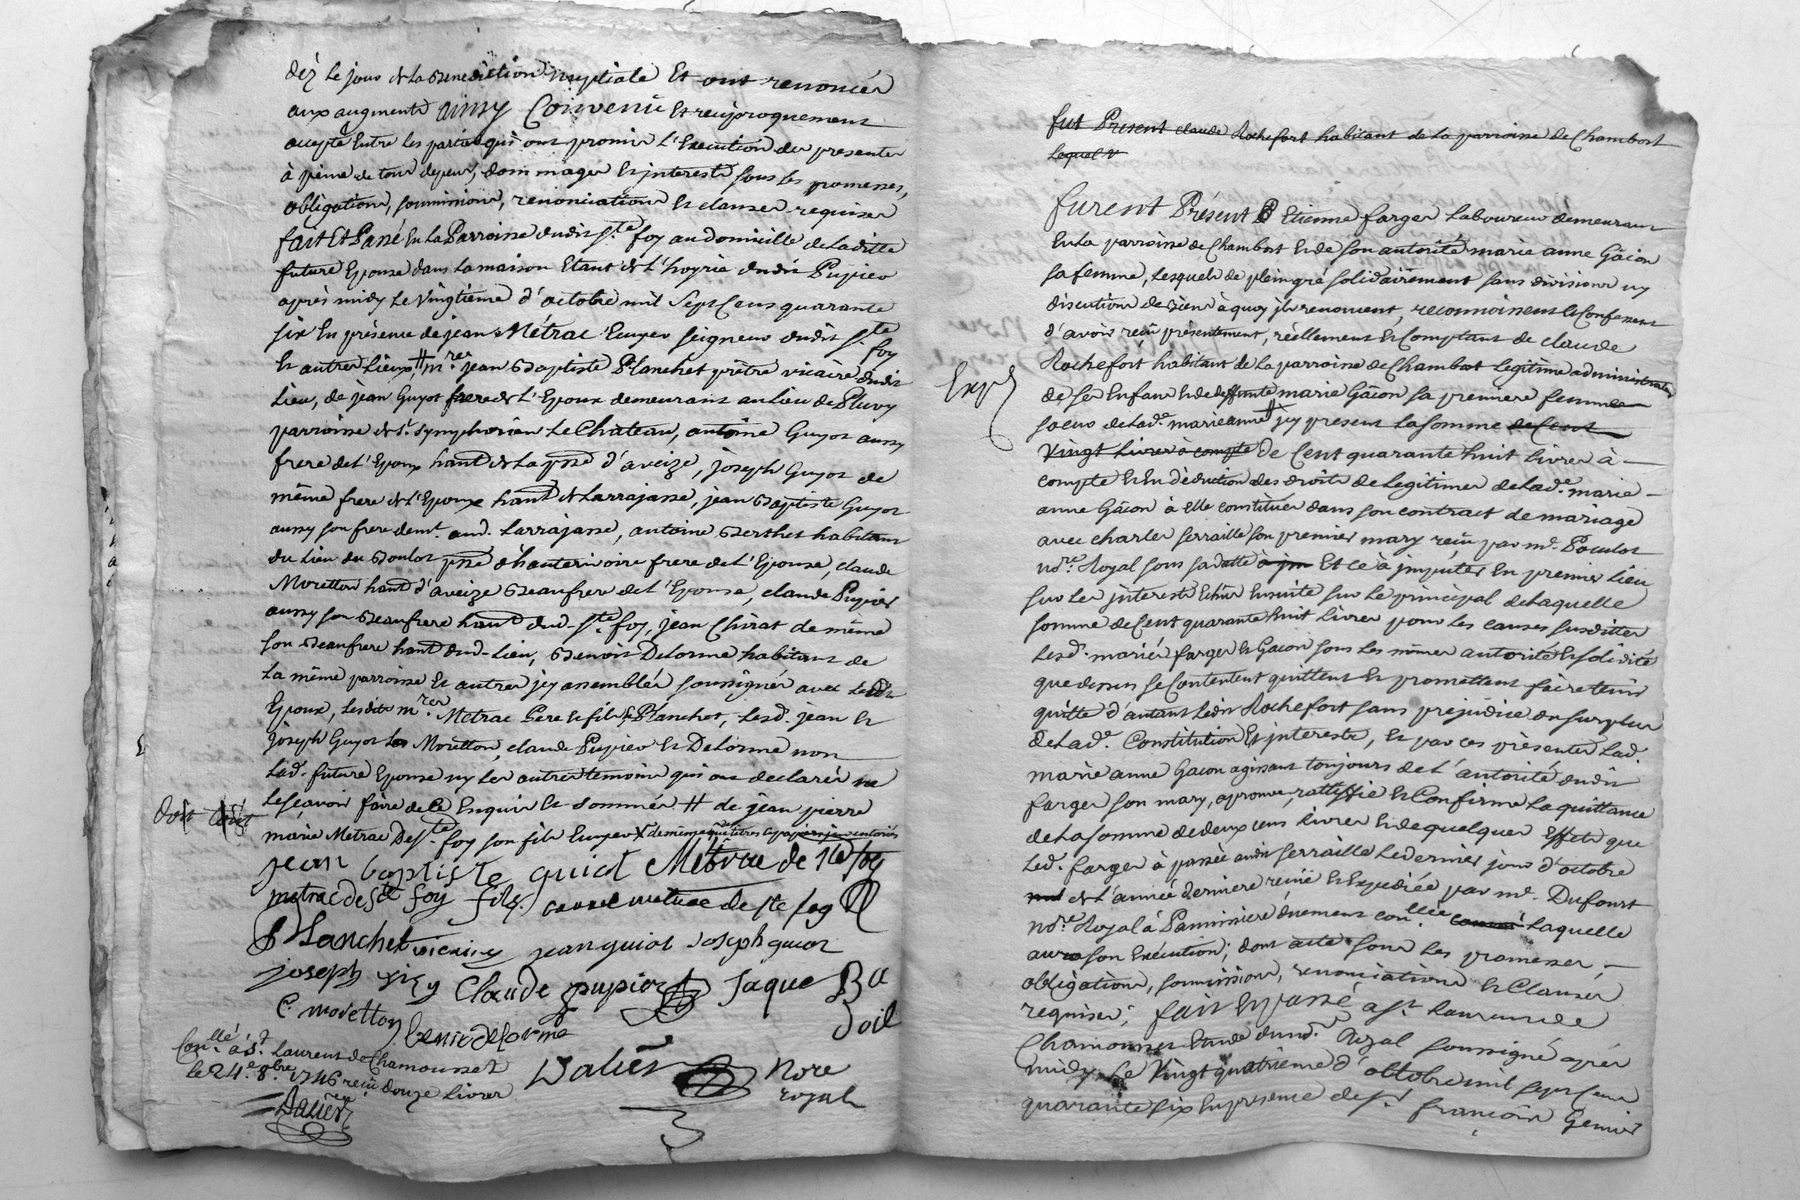 dez le jour de la Benediction nuptiale Et ont renoncéz
aux augments ainsy Convenu Et reciproquement
accepté Entre les parties qui ont promis l'Execution des presentes
à peine de tous depens, dommages Et jnterests sous les promesses,
obligations, soumissions, renonciations Et clauses requises
fait Et Passé En la Parroisse dudit Ste foy au Domicille de laditte
future Epouse dans la maison Etant de l'hoyrie dudit Pupier
après midy le Vingtième d'octobre mil Sept Cens quarante
six En présence de jean Métrac Ecuyer seigneur dudit Ste foy
Et autres Lieux # mre jean Baptiste Planchet prêtre vicaire dudit
Lieu, de jean Guyot frere de l'Epoux demeurant au Lieu de Pluvy
parroisse de St symphorien Le Chateau, antoine Guyot aussy
frere de l'Epoux hant de la psse d'aveize, joseph Guyot de
même frere de l'Epoux hant de Larrajasse, jean Baptiste Guyot
aussy son frere demt. aud. Larrajasse, antoine Berthet habitant
du lieu du Boulot psse d'hauterivoire frere de l'Epouse, claude
Moretton hant d'aveize Beaufrere de l'Epouse, claude Pupier
aussy son Beaufrere hant dud. Ste foy, jean Chirat de même
son Beaufrere hant dud. Lieu, Benoit Delorme habitant de
la même parroisse Et autres jcy assemblés soussignés avec ledit
Epoux, lesdits mres Metrac Pere Et fils Et Planchet, lesd. jean Et
joseph Guyot Moretton, claude Pupier Et Delorme non
lad. future Epouse ny les autres temoins qui ont declarés ne
le sçavoir faire de ce Enquis Et sommés # de jean pierre
marie Metrac De Ste foy son fils Ecuyer
jean baptiste guiot Métrac de Ste foy
metrac de Ste foy fils metrac de Ste foy
Planchet vicaire jean guiot joseph guiot
joseph Claude pupier Jaque
C. moretton benoit delorme
Conllé à St. Laurent de Chamousset
le 24e 8bre 1746 reçu douze livres
Dalier Nore
royal
fut Présent claude Rochefort habitant de la parroisse de Chambost
lequel
furent Présent Etienne farges Laboureur demeurant
En la parroisse de Chambost Et de son autorité marie anne Gâcon
sa femme, lesquels de plein gré solidairement sans division ny
discution de Biens à quoy jls renoncent, reconnoissent Et Confessent
d'avoir reçu présentement, réellement Et Comptant de claude
Rochefort habitant de la parroisse de Chambost legitime administrateur
Exp
de ses Enfans Et de deffunte marie Gâcon sa premiere femme
soeur de lad. marie anne # jcy present la somme de Cent
Vingt livres à compte De Cent quarante huit livres à
compte Et En déduction des droits de legitimes de lad. marie
anne Gâcon à Elle constitués dans son contract de mariage
avec charles serraille son premier mary reçu par me. Poulot
nore. Royal sous sa datte Et ce à jmputer En premier lieu
sur les jnterests Echus Ensuite sur le principal de laquelle
somme de Cent quarante huit livres pour les causes susdittes
lesd. mariés farges Et Gacon sous les mêmes autorité Et solidité
que dessus se Contentent quittent Et promettent faire tenir
quitte d'autant ledit Rochefort sans prejudice du surplus
de lad. Constitution Et jnterests, Et par ces présentes lad.
marie anne Gacon agissant toujours de l'autorité dudit
farges son mary, aprouve, rattiffie Et Confirme la quittance
de la somme de deux cens livres Et de quelques Effets que
led. farges à passée audit serraille le dernier jour d'octobre
de l'année derniere reçue Et Expediée par me. Dufourt
nore Royal à Pannissiere duement conllée laquelle
aura son Exécution; dont acte sous les promesses,
obligations, soumissions, renonciations Et Clauses
requises; fait Et passé a St. Laurent de
Chamousset Etude dunre. Royal soussigné après
midy Le Vingt quatrième d'octobre mil sept cens
quarante six En presence de Sr. françois Genier